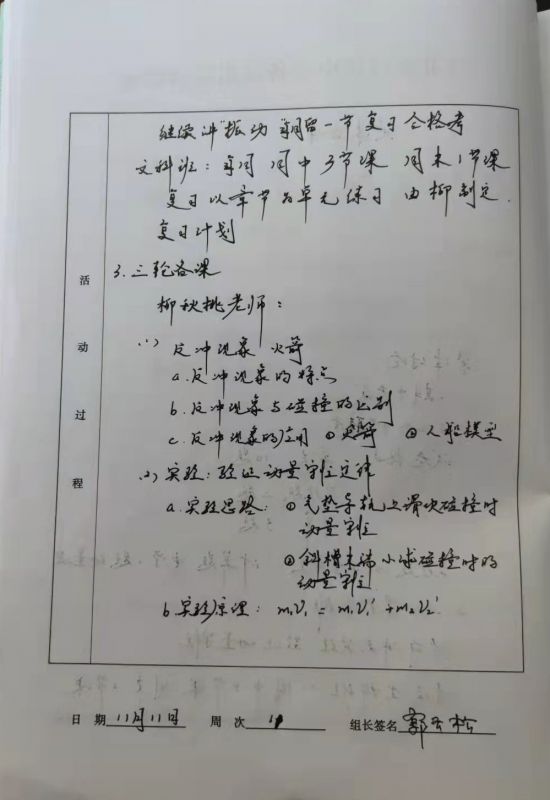 继续讲"振动 每周留一节 复习 合格考
文科班：每周 周中3节课 周末1节课
复习以章节为单元练习 由柳制定
复习计划
3.三轮备课
柳秋桃老师：
(1) 反冲现象 火箭
a.反冲现象的特点
b.反冲现象与碰撞的区别
c.反冲现象的应用 ①火箭 ②人船模型
(2)实验：验证动量守恒定律
a.实验思路：①气垫导轨上滑块碰撞时
动量守恒
②斜槽末端小球碰撞时的
动量守恒
b.实验原理：m₁v₁=m₁v₁'+m₂v₂'
活动过程
日 期 11月11日 周 次 11 组长签名 郭 松